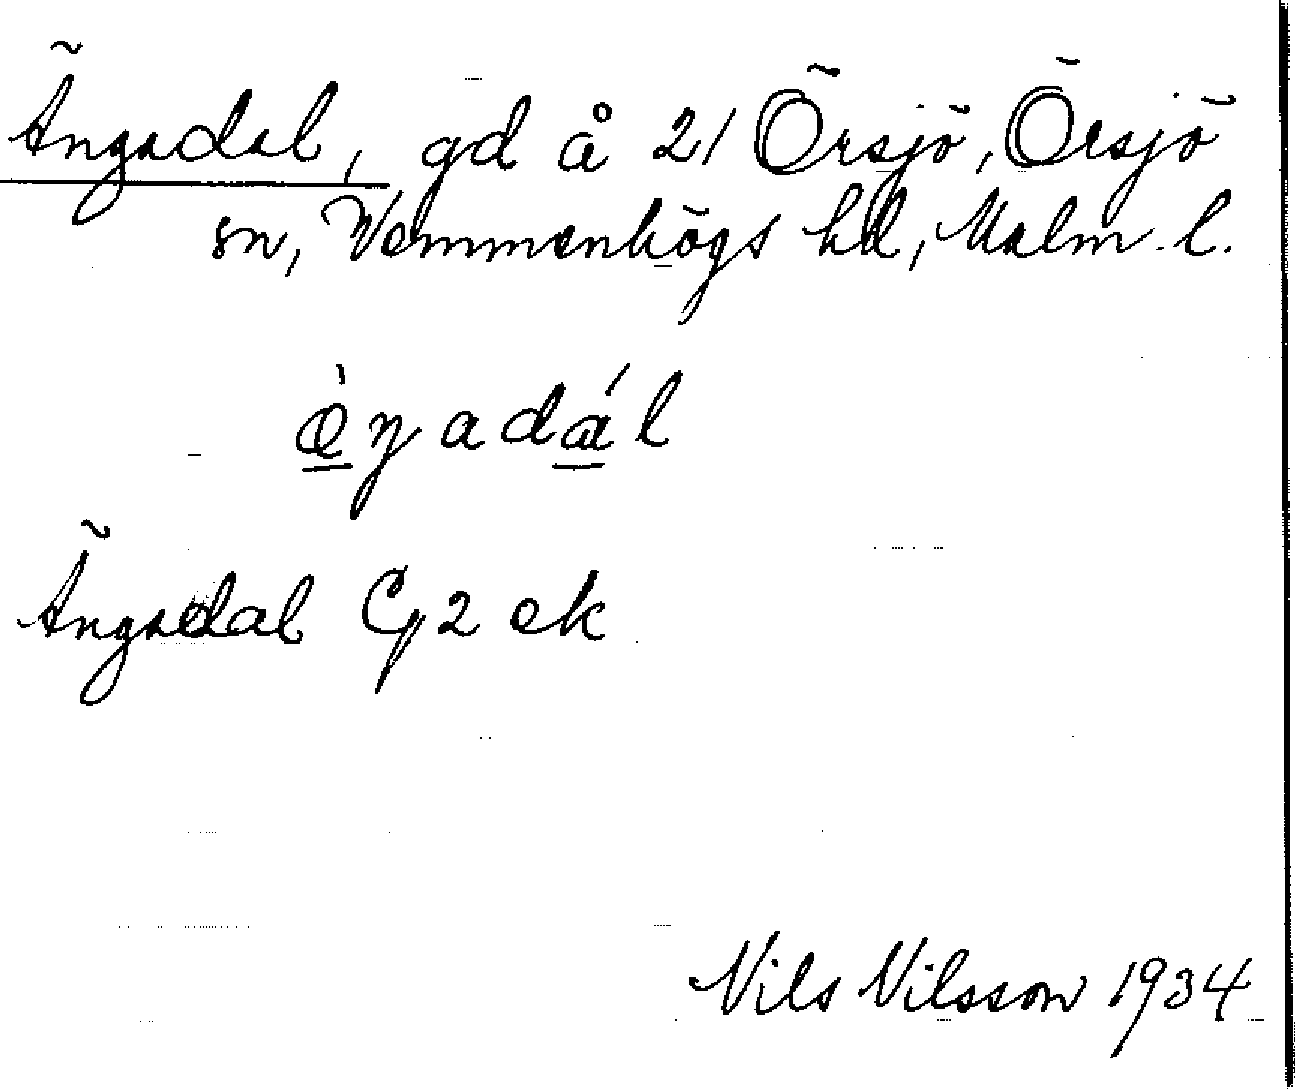 Ängadal, gd å 21 Örsjö, Örsjö
sn, Vemmenhögs hd, Malm. l.
æ̀ŋadál
Ängadal G2 ek
Nils Nilsson 1934